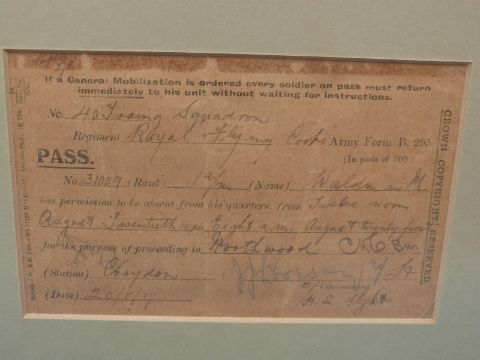 If a General Mobilization is ordered every soldier on pass must return
immediately to his unit without waiting for instructions.
No. 40 Traing Squadron
Regiment Royal Flying Corps Army Form B. 295
PASS.
(In pads of 100.)
No. 31009 (Rank) 1 a/m (Name) Waldman M
has permission to be absent from his quarters, from Twelve noon
August Twentieth to Eight a.m. August twenty first
for the purpose of proceeding to
(Station) Croydon
(Date) 20/8/17
Commanding
CROWN COPYRIGHT RESERVED